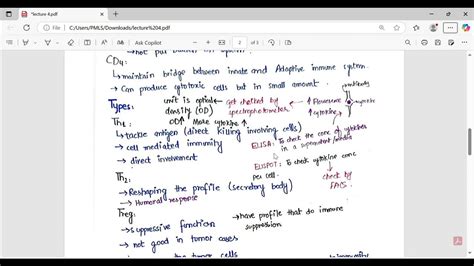 *lecture 4.pdf
C:/Users/PMLS/Downloads/lecture%204.pdf
Ask Copilot
2
CD4:
→ maintain bridge between innate and Adaptive immune system.
→ Can produce cytotoxic cells but in small amount.
Types:
unit is optical density (OD)
get checked by spectrophotometer
↑ Fluorescence
↑ cytokine
OD↑ More cytokine ↑
Th1
→ tackle antigen (direct killing involving cells)
→ cell mediated immunity
→ direct involvement
ELISA: To check the conc of cytokines in a
ELISPOT: To check cytokine conc per cell.
check by FACS
Th2:
→ Reshaping the profile (secretory body)
→ Humoral response
Treg:
→ suppressive function
→ have profile that do immune suppression
→ not good in tumor cases